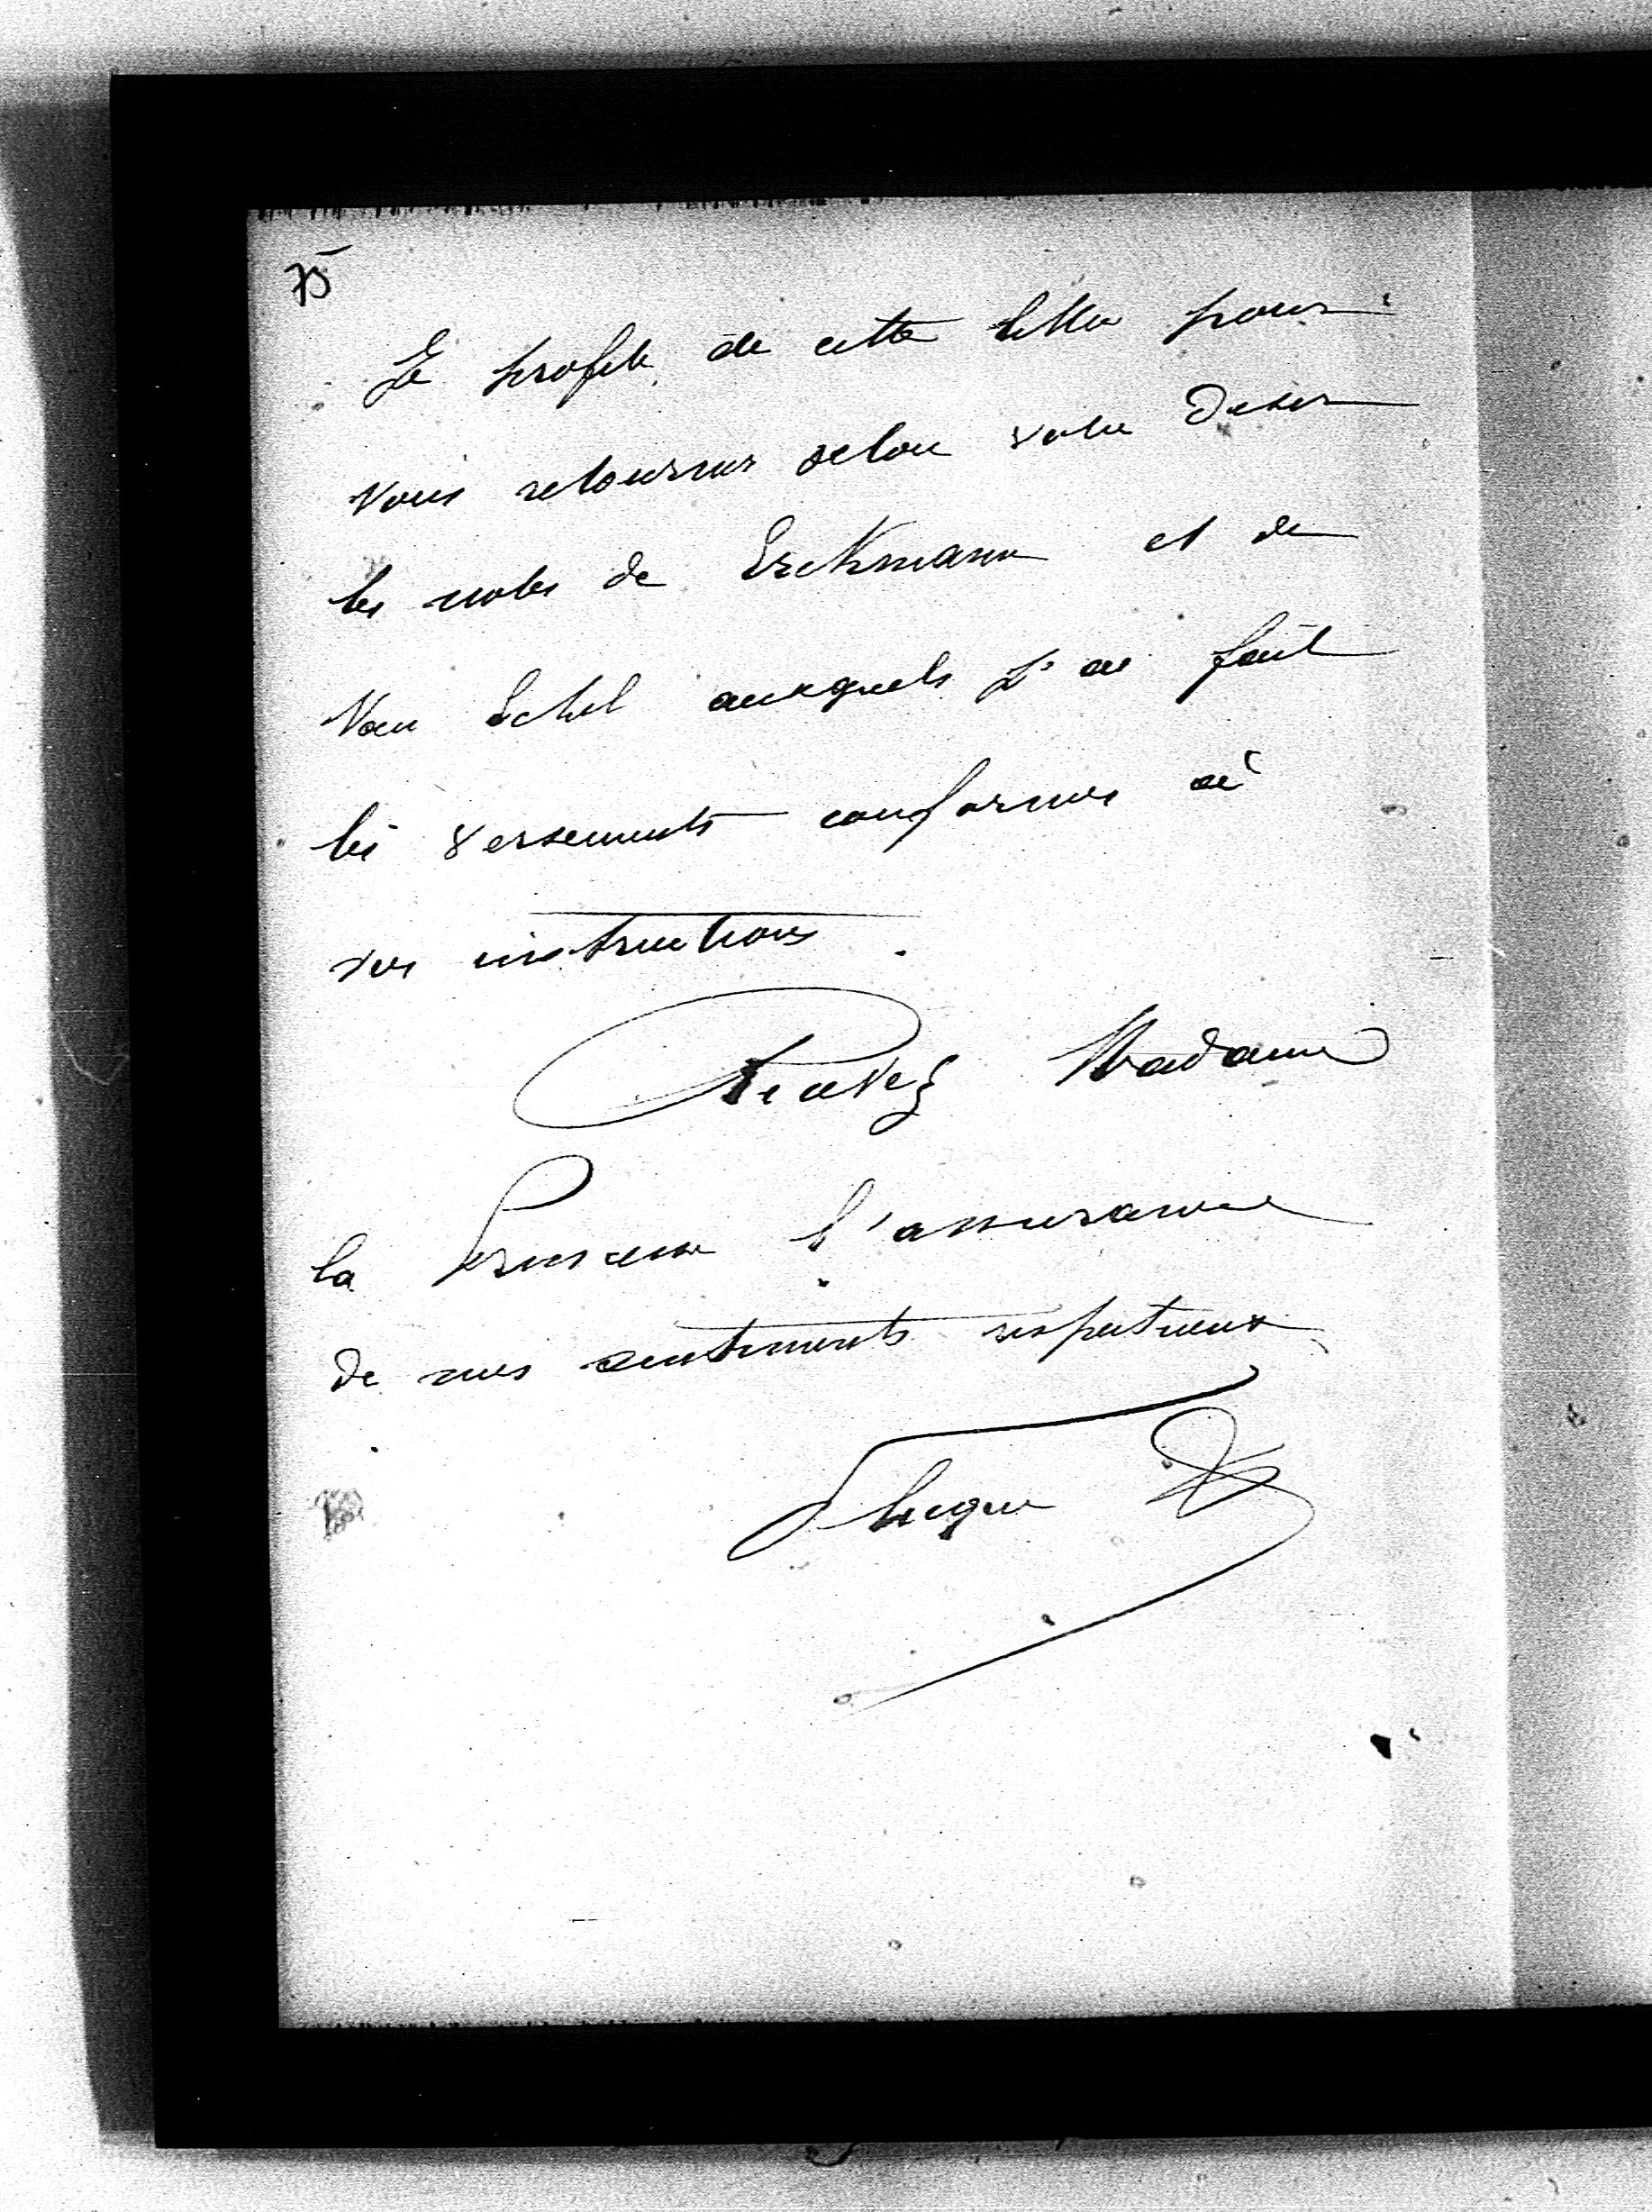 75
Je profite de cette lettre pour
vous retourner selon votre desir
les notes de Erckmann et de
Van Echel auxquels j'ai fait
les versements conformes à
vos instructions.
Recevez Madame
la Princesse l'assurance
de mes sentiments respectueux